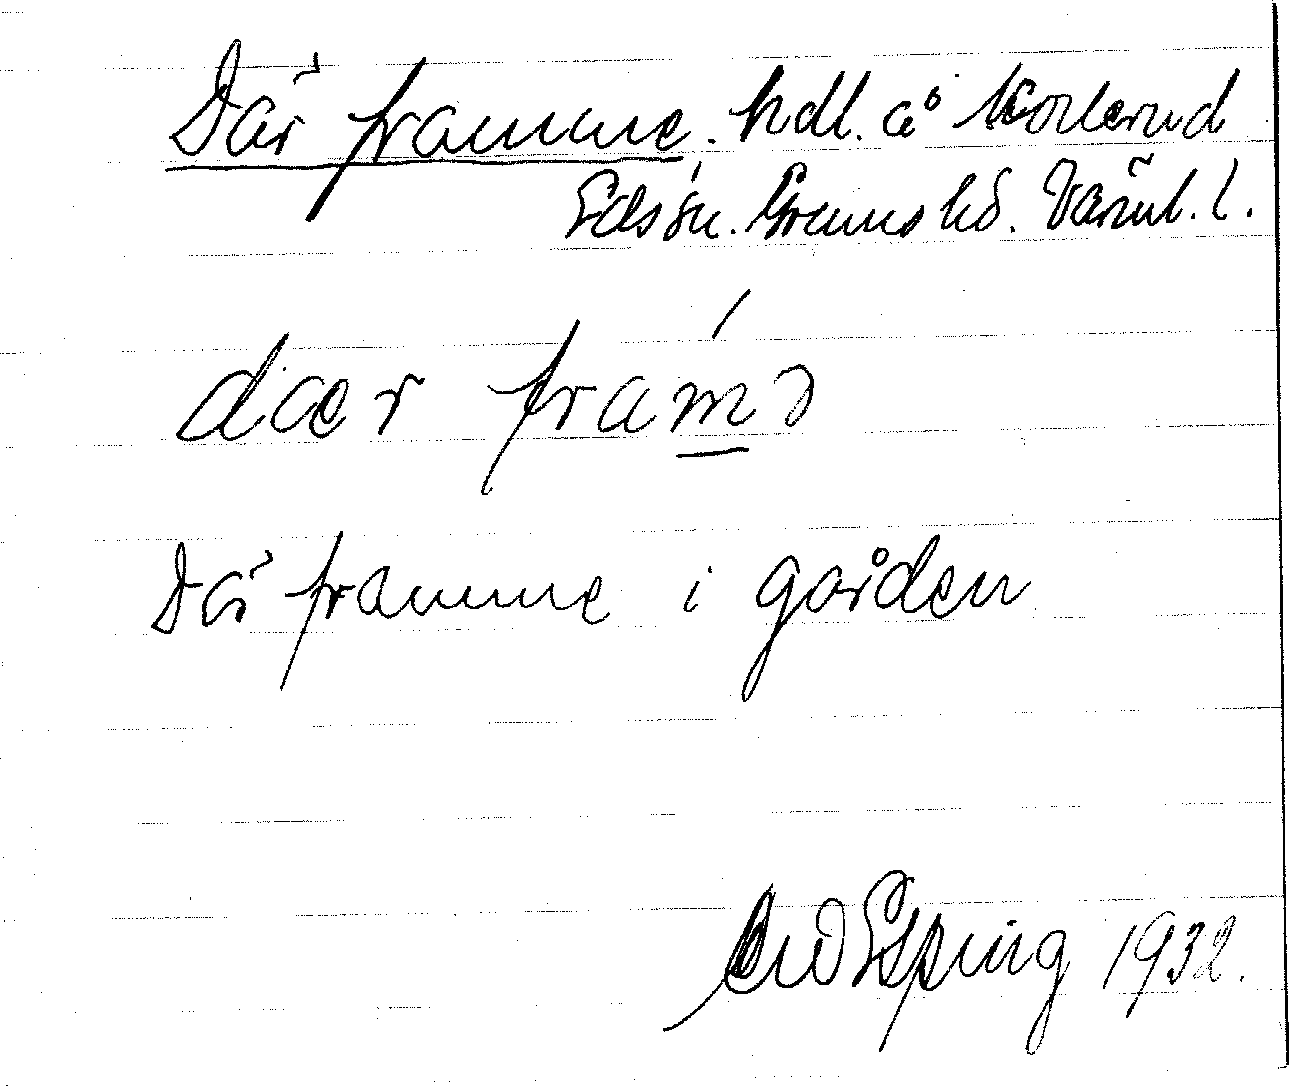 Där framme. hdl. å Korterud
Eds sn. Grums hd. Värml. l.
dær fram̲ə
Där framme i gården
Erling 1932.